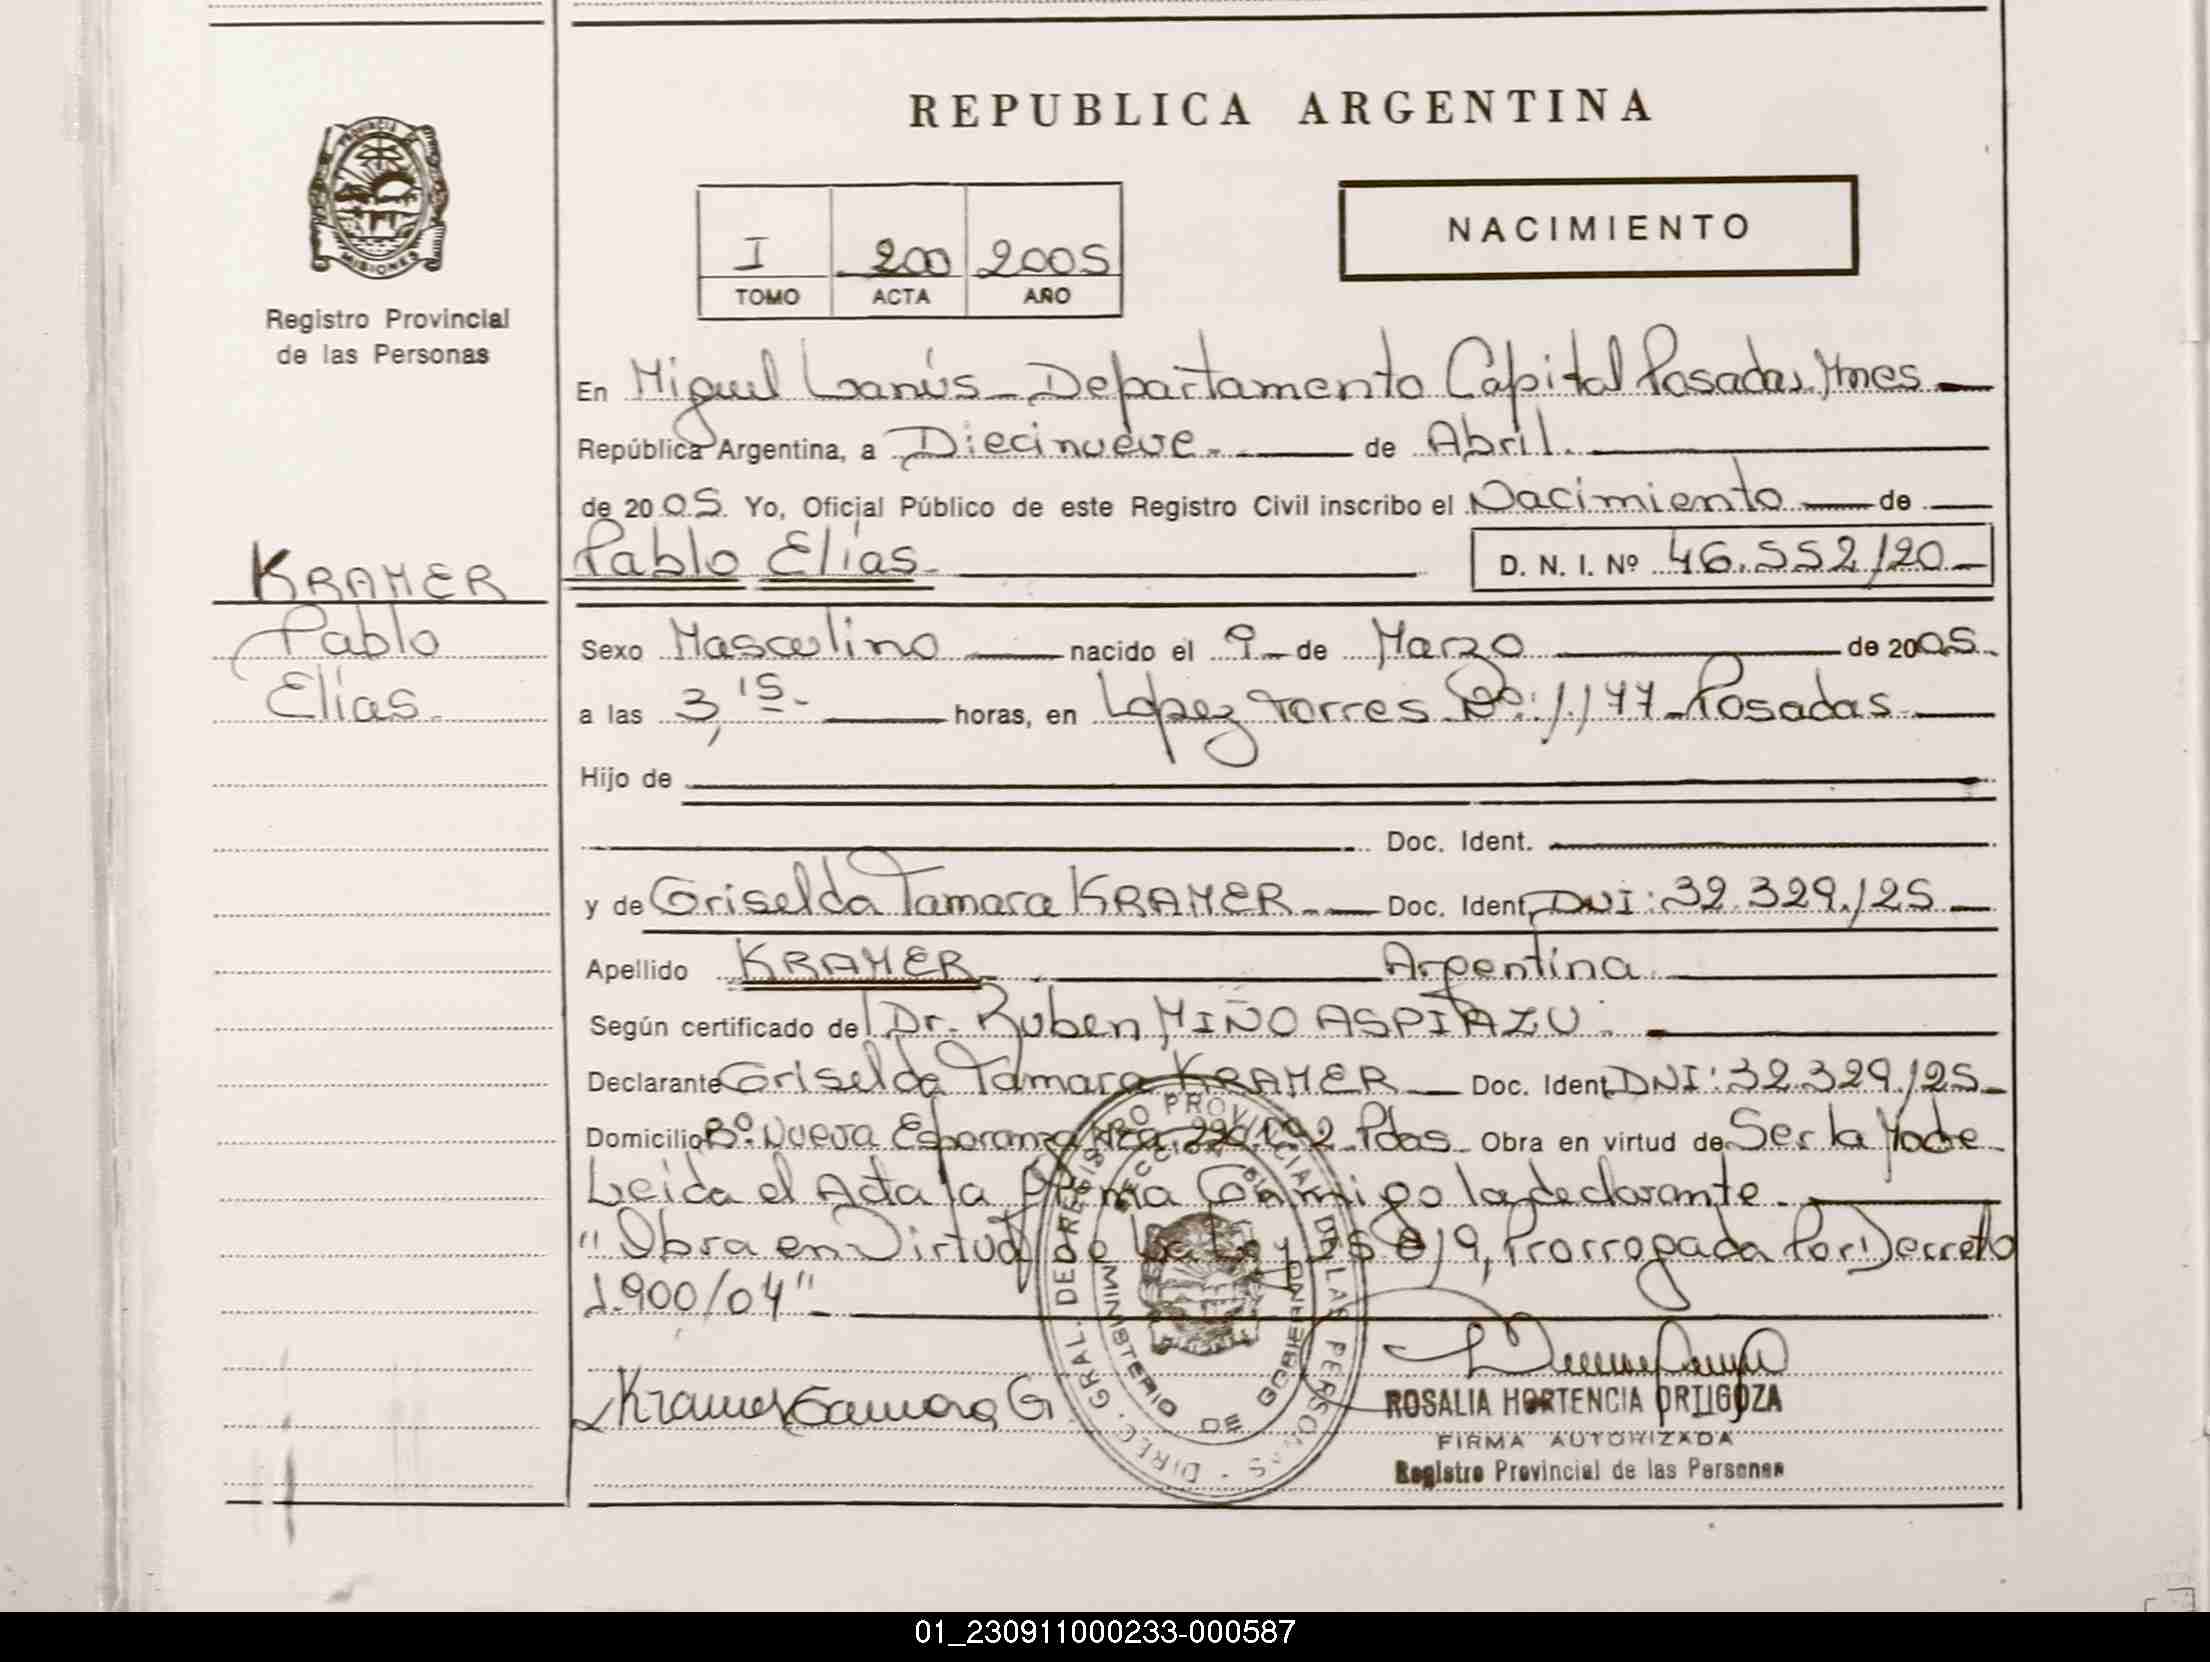 REPUBLICA ARGENTINA
PROVINCIA DE
MISIONES
Registro Provincial
de las Personas
I 200 2005
TOMO ACTA AÑO
NACIMIENTO
En Miguel Lanús - Departamento Capital Posadas, Mnes
República Argentina, a Diecinueve. de Abril.
de 2005. Yo, Oficial Público de este Registro Civil inscribo el Nacimiento de
KRAMER
Pablo
Elías.
Pablo Elías. D. N. I. Nº 46.552/20
Sexo Masculino nacido el 9 de Marzo de 2005.
a las 3,15 horas, en López Torres Nº: 1.177 - Posadas
Hijo de
Doc. Ident.
y de Griselda Tamara KRAMER Doc. Ident. DNI: 32.329./25
Apellido KRAMER Argentina
Según certificado del Dr. Ruben MIÑO ASPIAZU
Declarante Griselda Tamara KRAMER Doc. Ident. DNI: 32.329./25
Domicilio Bº. Nueva Esperanza Pdas Obra en virtud de Ser la Madre
Leida el Acta la firma Conmigo la declarante.
"Obra en Virtud de La Ley 25 8/9, Prorrogada Por Decreto
1.900/04"
Kramer Tamara G
DIREC. GRAL. DE REGISTRO PROVINCIAL DE LAS PERSONAS
MINISTERIO DE GOBIERNO
ROSALIA HORTENCIA ORTIGOZA
FIRMA AUTORIZADA
Registro Provincial de las Personas
01_230911000233-000587